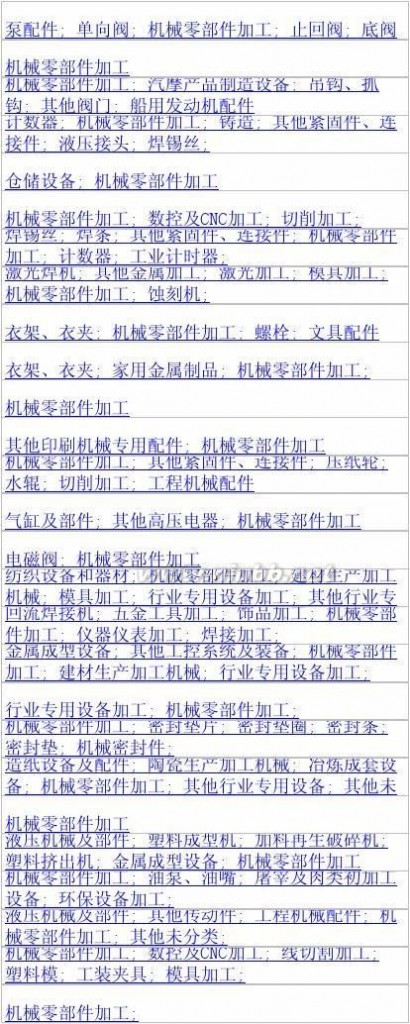 泵配件; 单向阀; 机械零部件加工; 止回阀; 底阀
机械零部件加工
机械零部件加工; 汽摩产品制造设备; 吊钩、抓
钩; 其他阀门; 船用发动机配件
计数器; 机械零部件加工; 铸造; 其他紧固件、连
接件; 液压接头; 焊锡丝;
仓储设备; 机械零部件加工
机械零部件加工; 数控及CNC加工; 切削加工;
焊锡丝; 焊条; 其他紧固件、连接件; 机械零部件
加工; 计数器; 工业计时器;
激光焊机; 其他金属加工; 激光加工; 模具加工;
机械零部件加工; 蚀刻机;
衣架、衣夹; 机械零部件加工; 螺栓; 文具配件
衣架、衣夹; 家用金属制品; 机械零部件加工;
机械零部件加工
其他印刷机械专用配件; 机械零部件加工
机械零部件加工; 其他紧固件、连接件; 压纸轮;
水辊; 切削加工; 工程机械配件
气缸及部件; 其他高压电器; 机械零部件加工
电磁阀; 机械零部件加工
纺织设备和器材; 机械零部件加工; 建材生产加工
机械; 模具加工; 行业专用设备加工; 其他行业专
回流焊接机; 五金工具加工; 饰品加工; 机械零部
件加工; 仪器仪表加工; 焊接加工;
金属成型设备; 其他工控系统及装备; 机械零部件
加工; 建材生产加工机械; 行业专用设备加工;
行业专用设备加工; 机械零部件加工;
机械零部件加工; 密封垫片; 密封垫圈; 密封条;
密封垫; 机械密封件;
造纸设备及配件; 陶瓷生产加工机械; 冶炼成套设
备; 机械零部件加工; 其他行业专用设备; 其他未
机械零部件加工
液压机械及部件; 塑料成型机; 加料再生破碎机;
塑料挤出机; 金属成型设备; 机械零部件加工
机械零部件加工; 油泵、油嘴; 屠宰及肉类初加工
设备; 环保设备加工;
液压机械及部件; 其他传动件; 工程机械配件; 机
械零部件加工; 其他未分类;
机械零部件加工; 数控及CNC加工; 线切割加工;
塑料模; 工装夹具; 模具加工;
机械零部件加工;